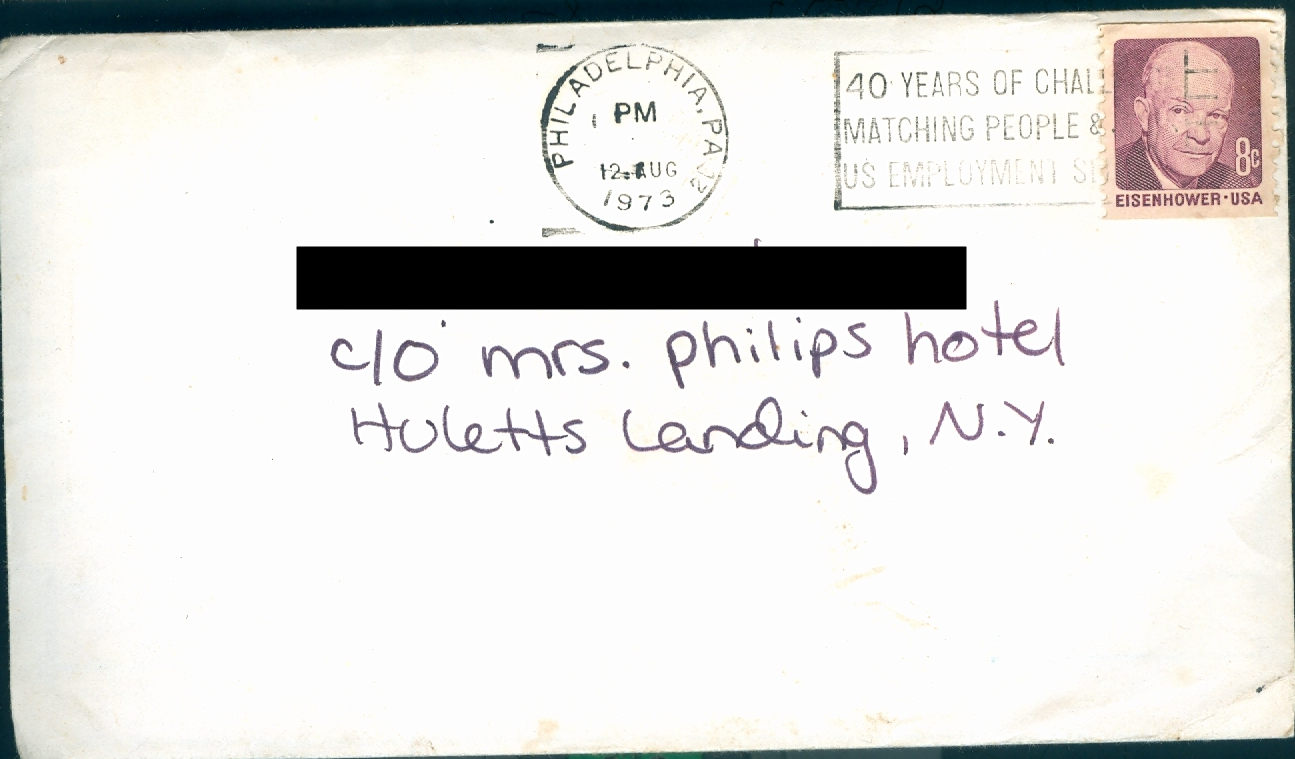 PHILADELPHIA, PA
PM
12 AUG
1973
40 YEARS OF CHALL
MATCHING PEOPLE &
US EMPLOYMENT
8c
EISENHOWER · USA
c/o mrs. philips hotel
Huletts Landing, N.Y.